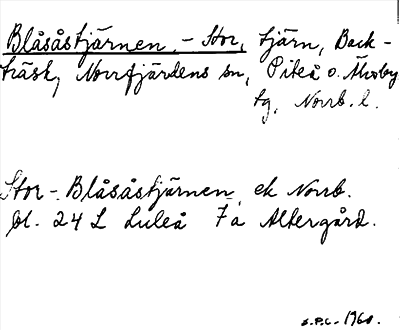 Blåsåstjärnen, - Stor, tjärn, Back-
träsk, Norrfjärdens sn, Piteå o. Älvsby
tg, Norrb. l.
Stor-Blåsåstjärnen, ek Norrb.
bl. 24 L Luleå 7a Altergård.
S.P.L. 1960.